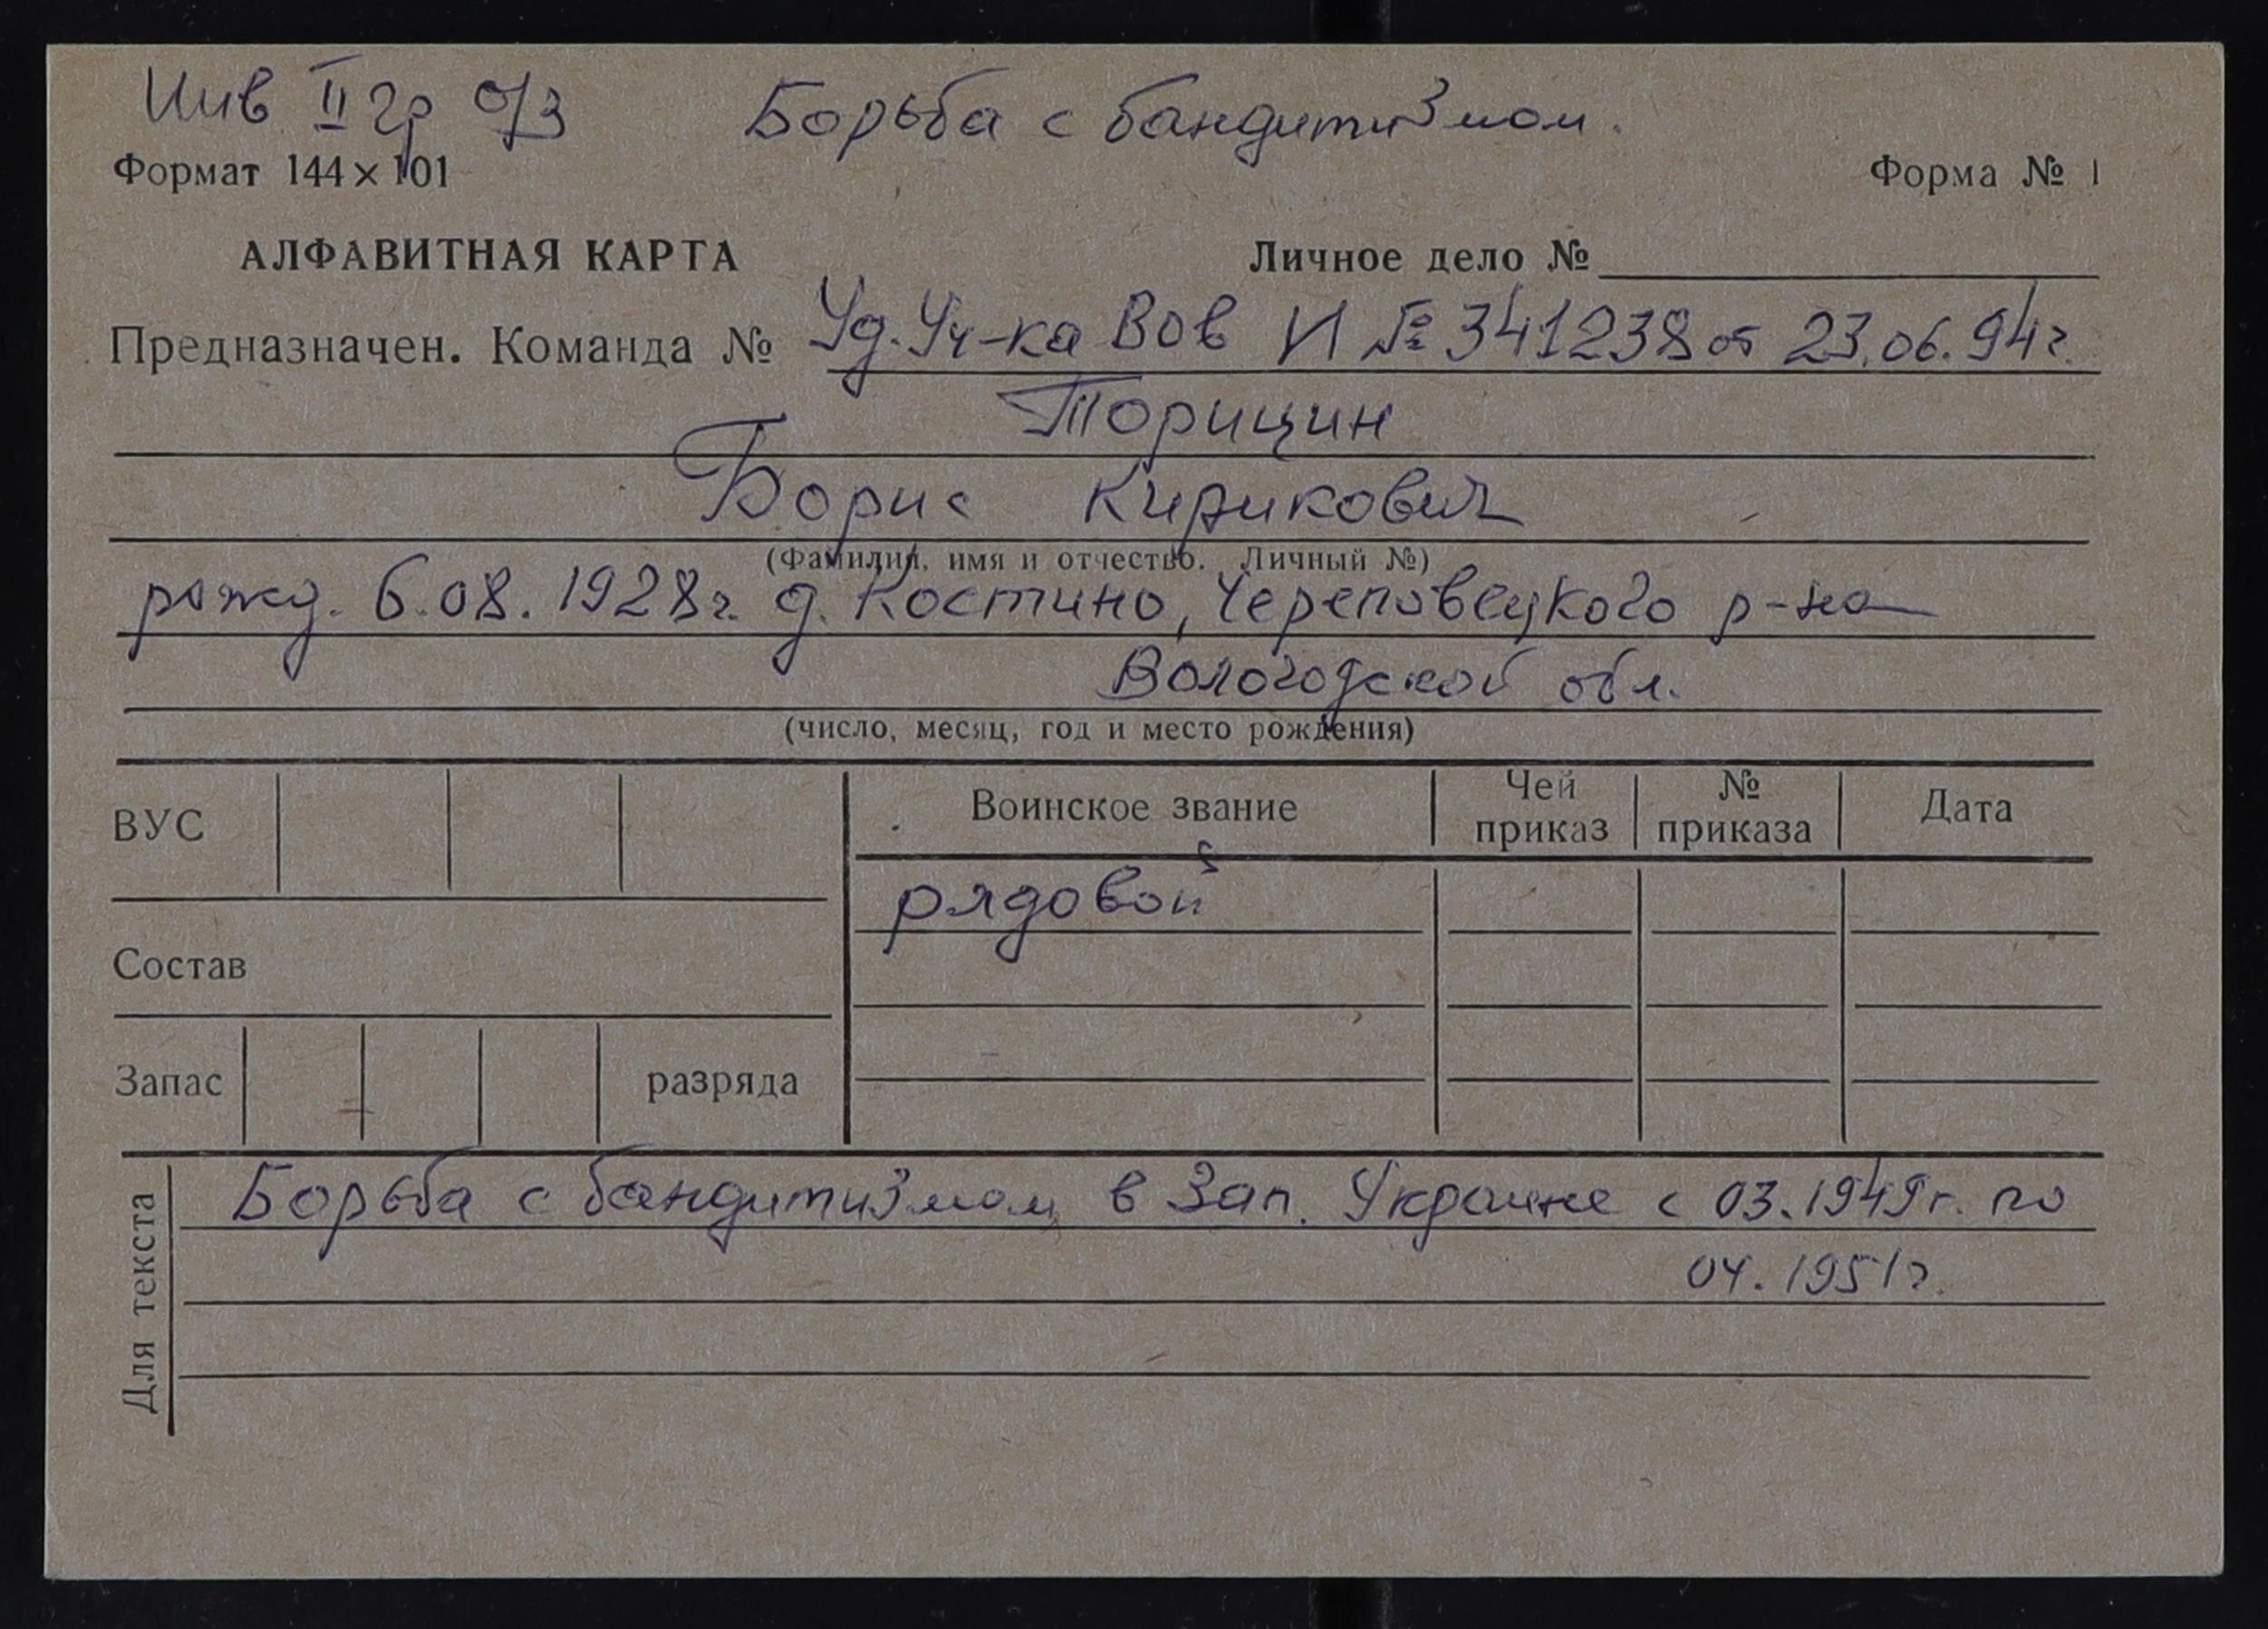 Инв II гр о/з Борьба с бандитизмом.
Формат 144×101 Форма № 1
АЛФАВИТНАЯ КАРТА Личное дело №
Предназначен. Команда № Уд. Уч-ка Вов И № 341238 от 23.06.94г.
Торицин
Борис Кирикович
(Фамилия, имя и отчество. Личный №)
рожд. 6.08.1928г. д. Костино, Череповецкого р-на
Вологодской обл.
(число, месяц, год и место рождения)
ВУС Воинское звание Чей приказ № приказа Дата
рядовой
Состав
Запас разряда
Для текста
Борьба с бандитизмом в Зап. Украине с 03.1949г. по
04.1951г.